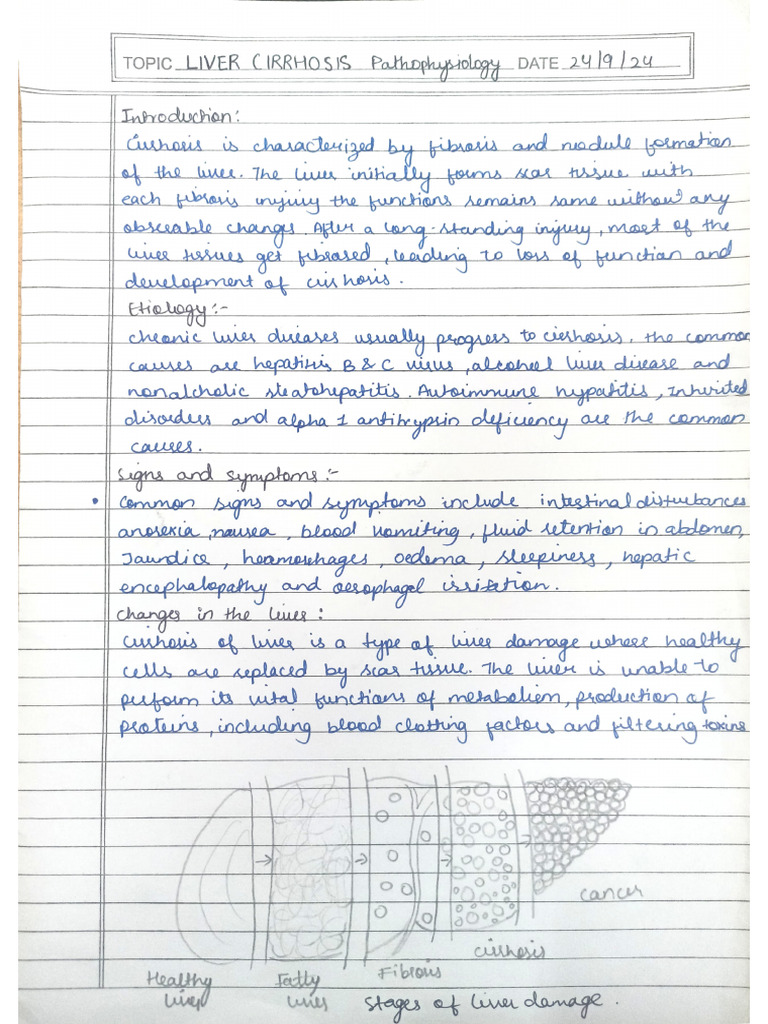 TOPIC LIVER CIRRHOSIS Pathophysiology DATE 24/9/24
Introduction:
Cirrhosis is characterized by fibrosis and nodule formation
of the liver. The liver initially forms scar tissue with
each fibrosis injury the functions remains same without any
obserable changes. After a long-standing injury, most of the
liver tissues get fibrosed, leading to loss of function and
development of cirrhosis.
Etiology:-
chronic liver diseases usually progress to cirrhosis. The common
causes are hepatitis B & C virus, alcohol liver disease and
nonalcholic steatohepatitis. Autoimmune hypatitis, Inherited
disorders and alpha 1 antitrypsin deficiency are the common
causes.
Signs and symptoms:-
• Common signs and symptoms include intestinal disturbances
anorexia, nausea, blood vomiting, fluid retention in abdomen,
Jaundice, heamorrhages, oedema, sleepiness, hepatic
encephalopathy and oesophagel irritation.
Changes in the liver:
Cirrhosis of liver is a type of liver damage where healthy
cells are replaced by scar tissue. The liver is unable to
perform its vital functions of metabolism, production of
proteins, including blood clotting factors and filtering toxins
cancer
cirrhosis
Healthy liver
Fatty liver
Fibrosis
Stages of liver damage.